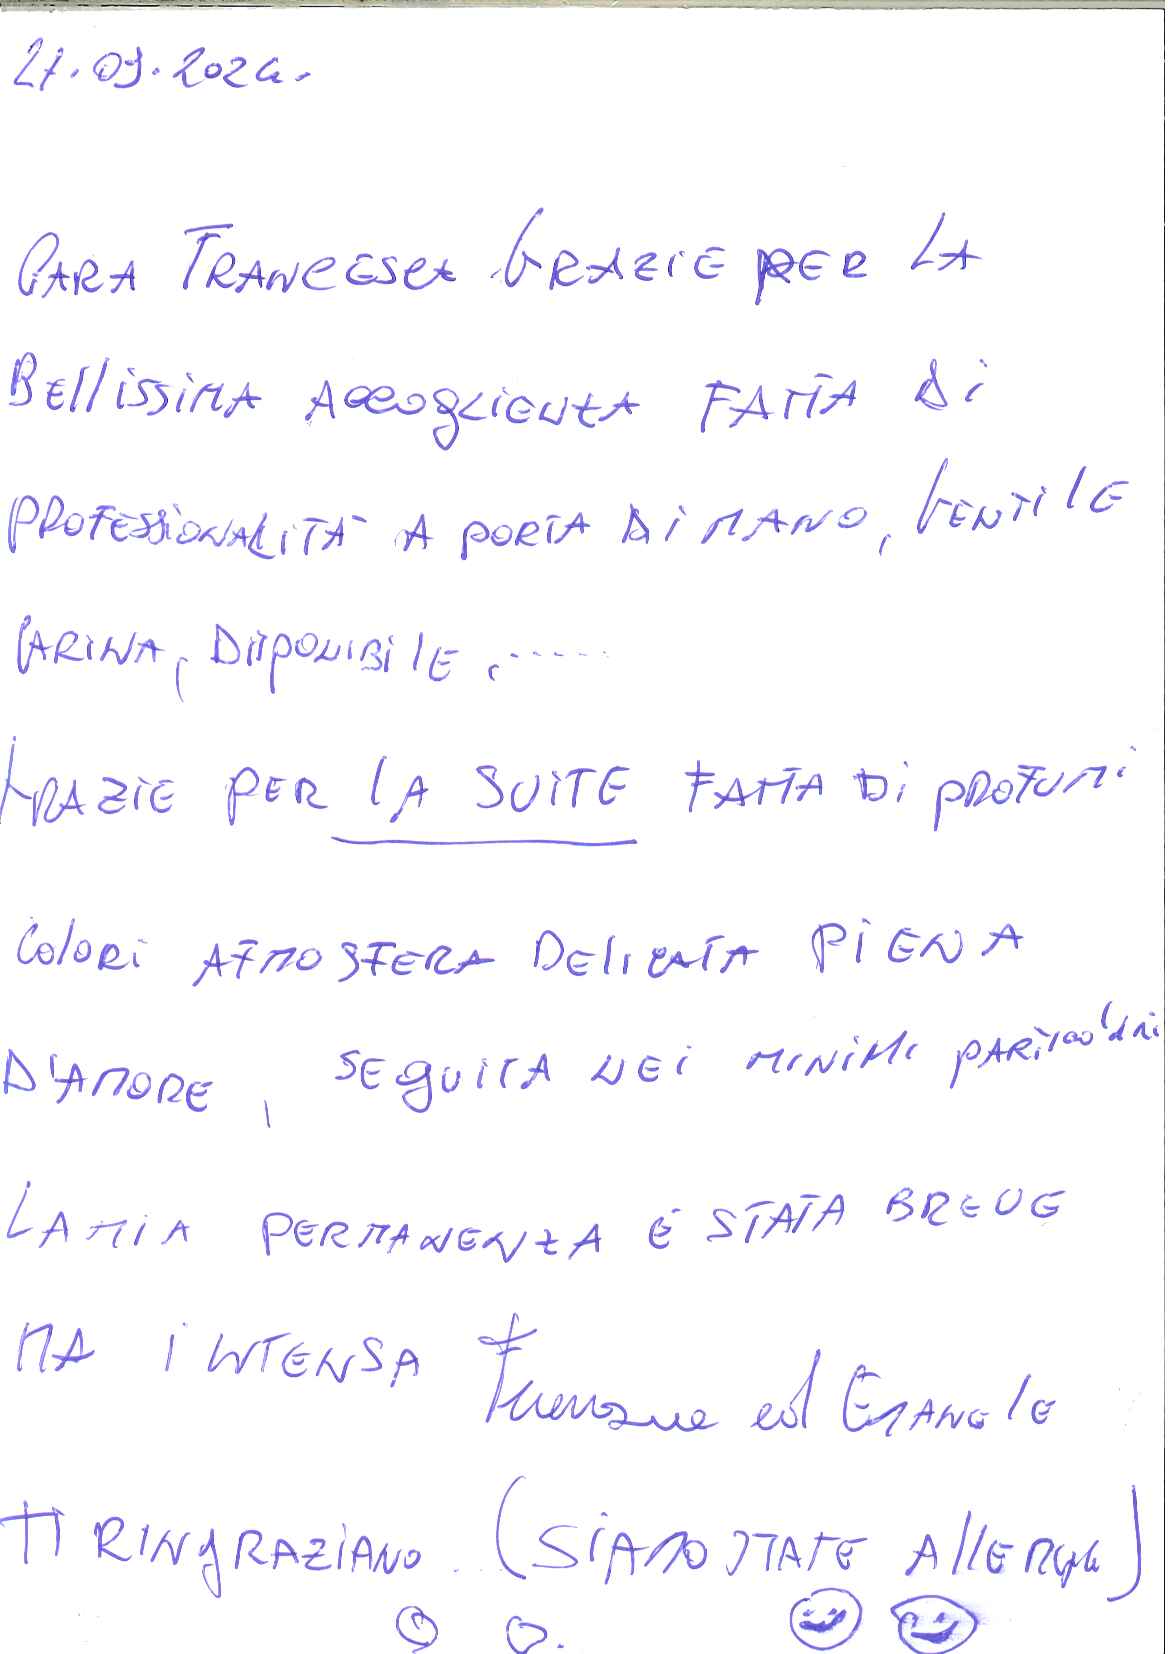 27.09.2024.
CARA FRANCESCA GRAZIE PER LA
BELLISSIMA ACCOGLIENZA FATTA DI
PROFESSIONALITÀ A PORTA DI MANO, GENTILE
CARINA, DISPONIBILE, .....
GRAZIE PER LA SUITE FATTA DI PROFUMI
COLORI ATMOSFERA DELICATA PIENA
D'AMORE, SEGUITA NEI MINIMI PARTICOLARI
LA MIA PERMANENZA É STATA BREVE
MA INTENSA ed
TI RINGRAZIANO. (SIAMO STATE